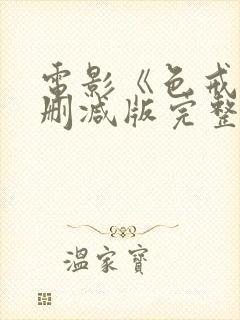 電影《色戒
删减版完整
溫家寶